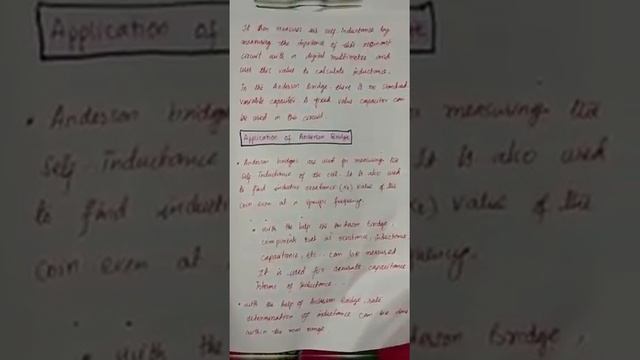 It then measures the self inductance by
measuring the impedance of this resonant
circuit with a digital multimeter and
uses this value to calculate inductance.
In the Anderson Bridge, there is no standard
variable capacitor. A fixed value capacitor can
be used in the circuit.
Application of Anderson Bridge
• Anderson bridges are used for measuring the
self Inductance of the coil. It is also used
to find inductive reactance (XL) value of the
coin even at a specific frequency.
• with the help of Anderson Bridge,
components such as resistance, inductance,
capacitance, etc... can be measured.
It is used for accurate capacitance
interms of Inductance.
• with the help of Anderson bridge,
determination of inductance can be done
within the range